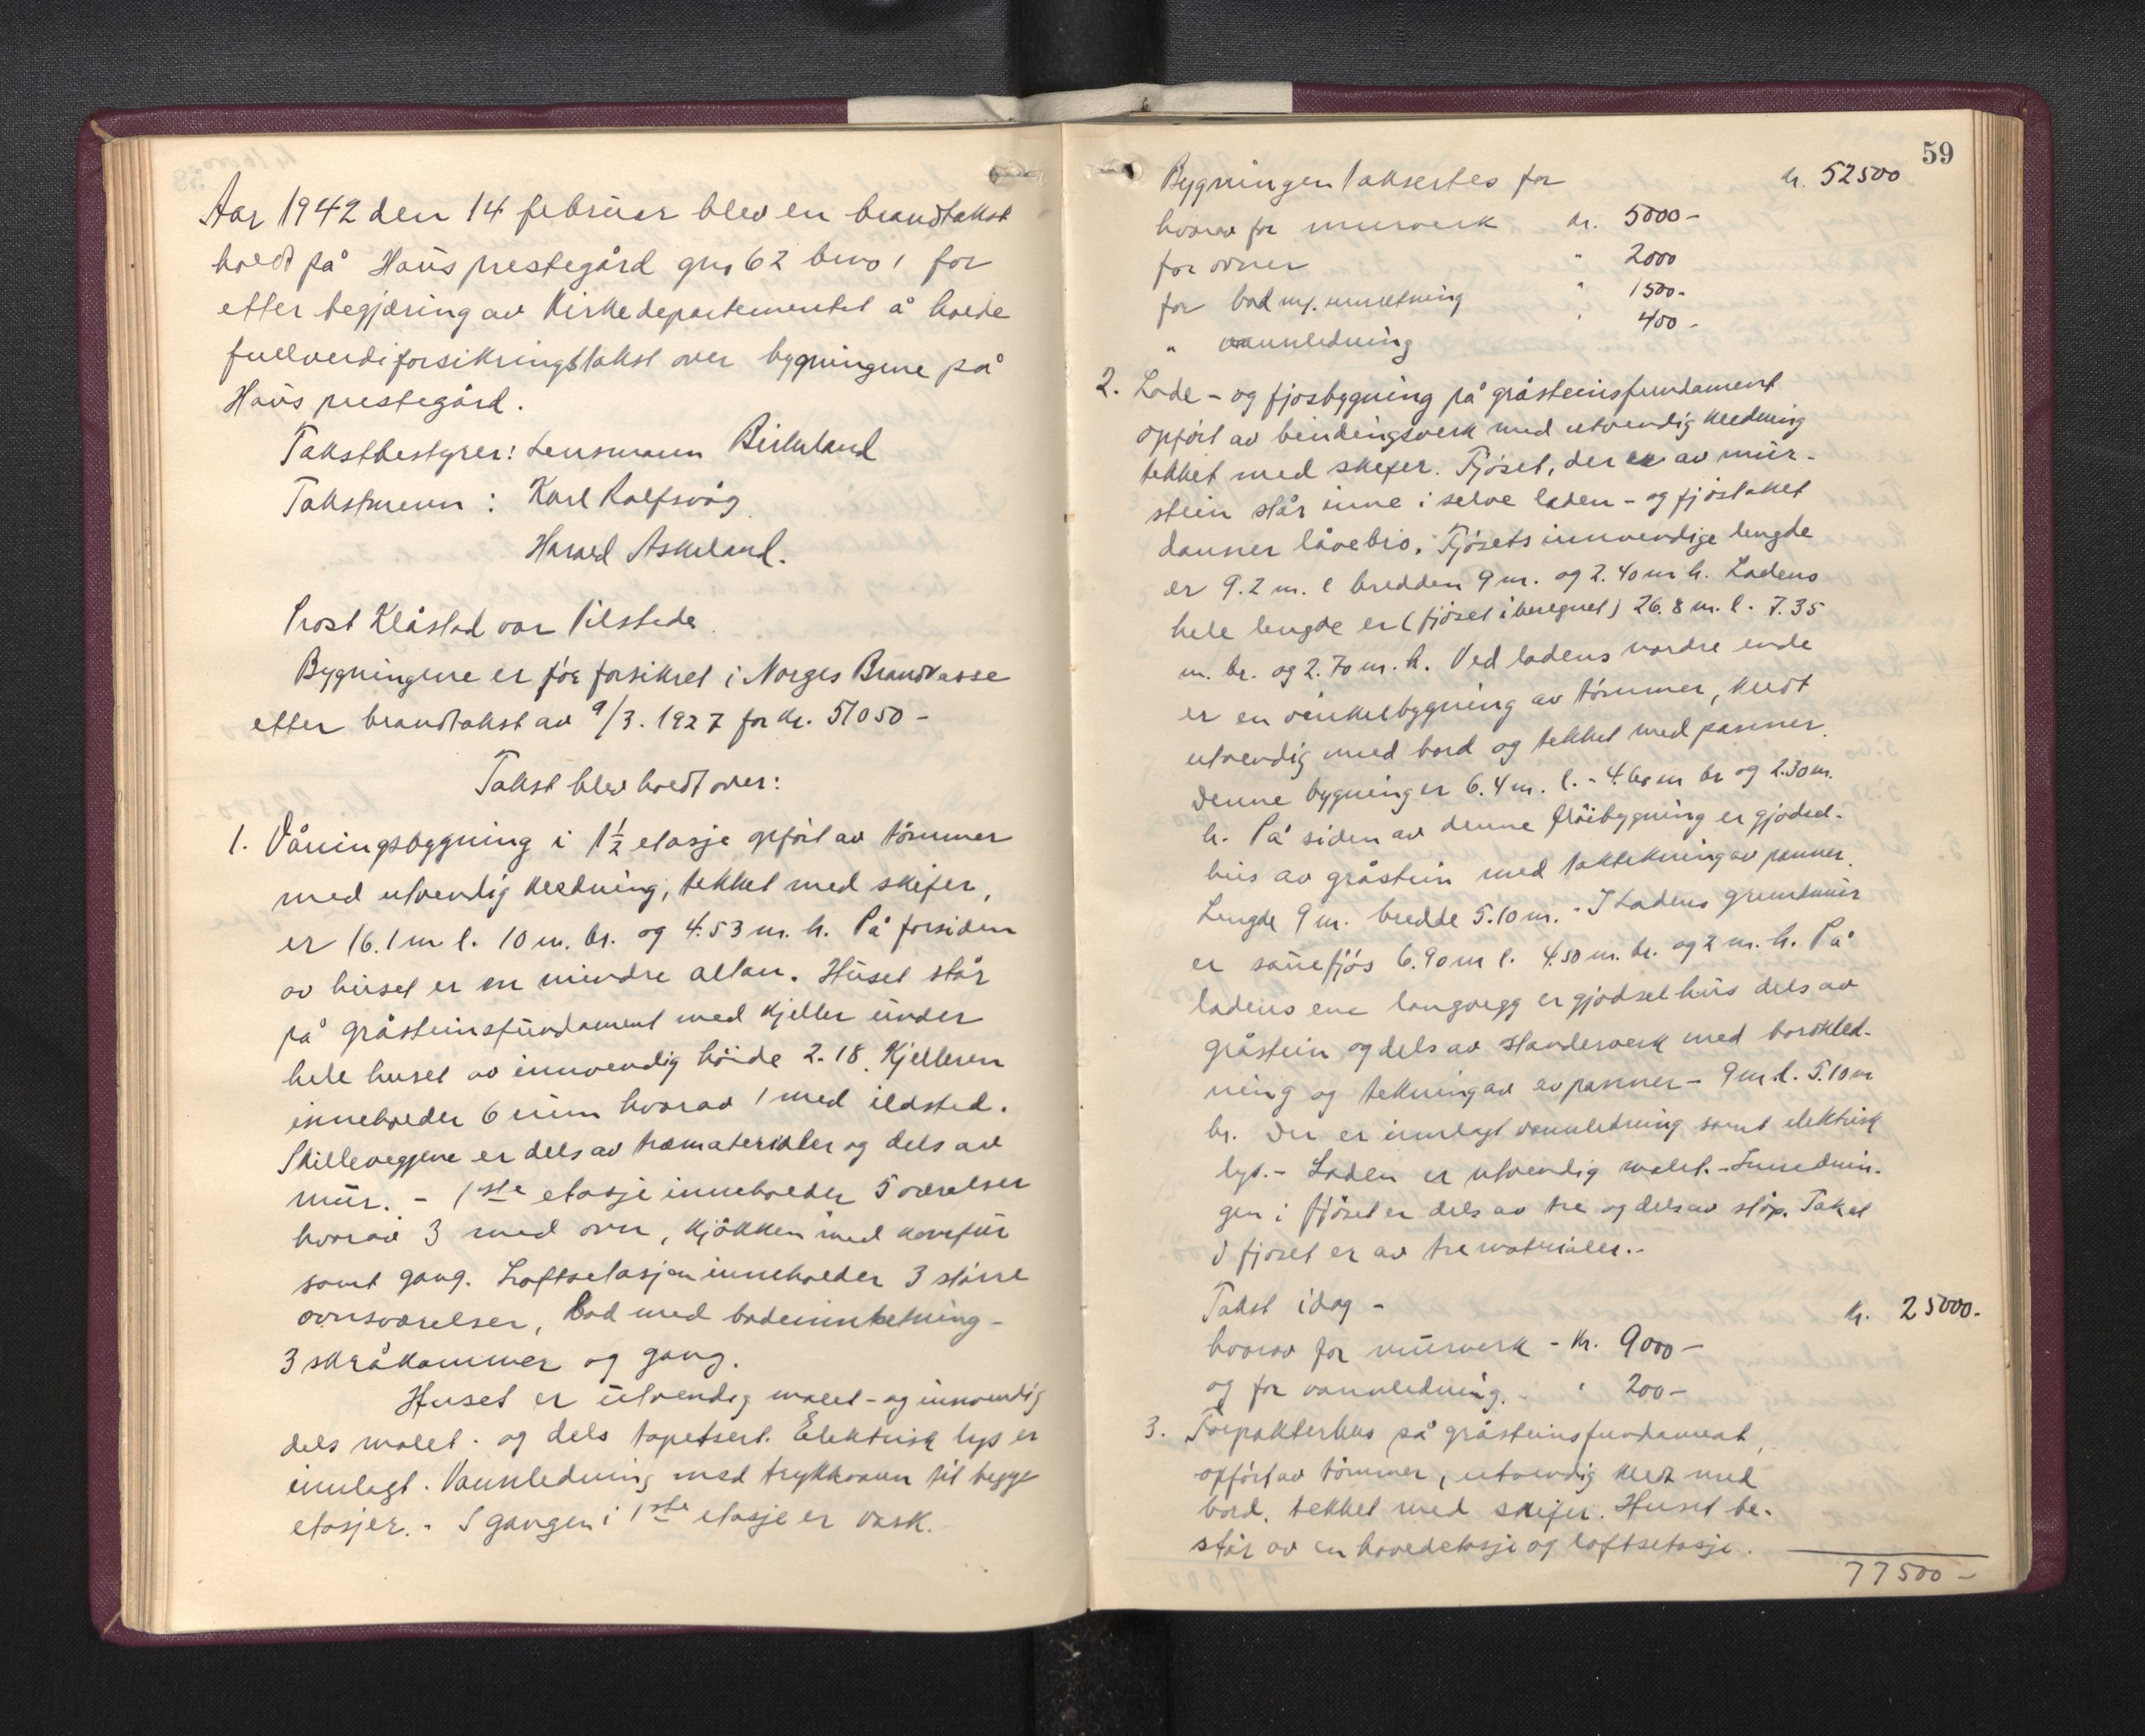 Aar 1942 den 14 februar blev en brandtakst
holdt på Haus prestegård gno 62 bno 1 for
efter begjæring av Kirkedepartementet å holde
fullverdiforsikringstakst over bygningene på
Haus prestegård.
Takstbestyrer: Lensmann Birkeland
Takstmenn: Karl Rolfsvåg
Harald Askeland.
Prost Klåstad var tilstede.
Bygningene er før forsikret i Norges Brandkasse
efter brandtakst av 9/3. 1927 for kr. 51050 -
Takst blev holdt over:
1. Våningsbygning i 1½ etasje opført av tømmer
med utvendig kledning, tekket med skifer,
er 16.1 m l. 10 m. br. og 4.53 m. h. På forsiden
av huset er en mindre altan. Huset står
på gråsteinsfundament med kjeller under
hele huset av innvendig høide 2.18. Kjelleren
inneholder 6 rum hvorav 1 med ildsted.
Skilleveggene er dels av træmaterialer og dels av
mur. - 1ste etasje inneholder 5 værelser
hvorav 3 med ovn, kjøkken med komfür
samt gang. Loftsetasjen inneholder 3 større
ovnsværelser, bad med badeinnretning -
3 skråkammer og gang.
Huset er utvendig malet - og innvendig
dels malet. og dels tapetsert. Elektrisk lys er
innlagt. Vannledning med trykkvann til begge
etasjer. - I gangen i 1ste etasje er vask.
59
Bygningen taksertes for kr. 52500
hvorav for murverk kr. 5000 -
for ovner " 2000
for bad m/. innretning " 1500 -
" vannledning " 400 -
2. Lade - og fjøsbygning på gråsteinsfundament
opført av bindingsverk med utvendig kledning
tekket med skifer. Fjøset, der er av mur-
stein står inne i selve laden - og fjøstaket
danner låvebro. Fjøsets innvendige lengde
er 9.2 m. l bredden 9 m. og 2.40 m h. Ladens
hele lengde er (fjøset iberegnet) 26.8 m. l. 7.35
m. br. og 2.70 m. h. Ved ladens nordre ende
er en vinkelbygning av tømmer, kledt
utvendig med bord og tekket med panner.
Denne bygning er 6.4 m. l. - 4.60 m br og 2.30 m.
h. På siden av denne bygning er gjødsel-
hus av gråstein med taktekning av panner.
Lengde 9 m. bredde 5.10 m. - I Ladens grunnmur
er sauefjøs 6.90 m l. 4.50 m. br. og 2 m. h. På
ladens ene langvegg er gjødselhus dels av
gråstein og dels av standerverk med bordkled-
ning og tekning av av panner - 9 m. l. 5.10 m
br. Der er innlagt vannledning samt elektrisk
lys. - Laden er utvendig malet. - Innrednin-
gen i fjøset er dels av tre og dels av støp. Taket
i fjøset er av trematerialer. -
Takst idag - kr. 25000.-
hvorav for murverk - kr. 9000 -
og for vannledning. " 200 -
3. Forpakterhus på gråsteinsfundament,
opført av tømmer, utvendig kledt med
bord, tekket med skifer. Huset be-
står av en hovedetasje og loftsetasje.
77500 -